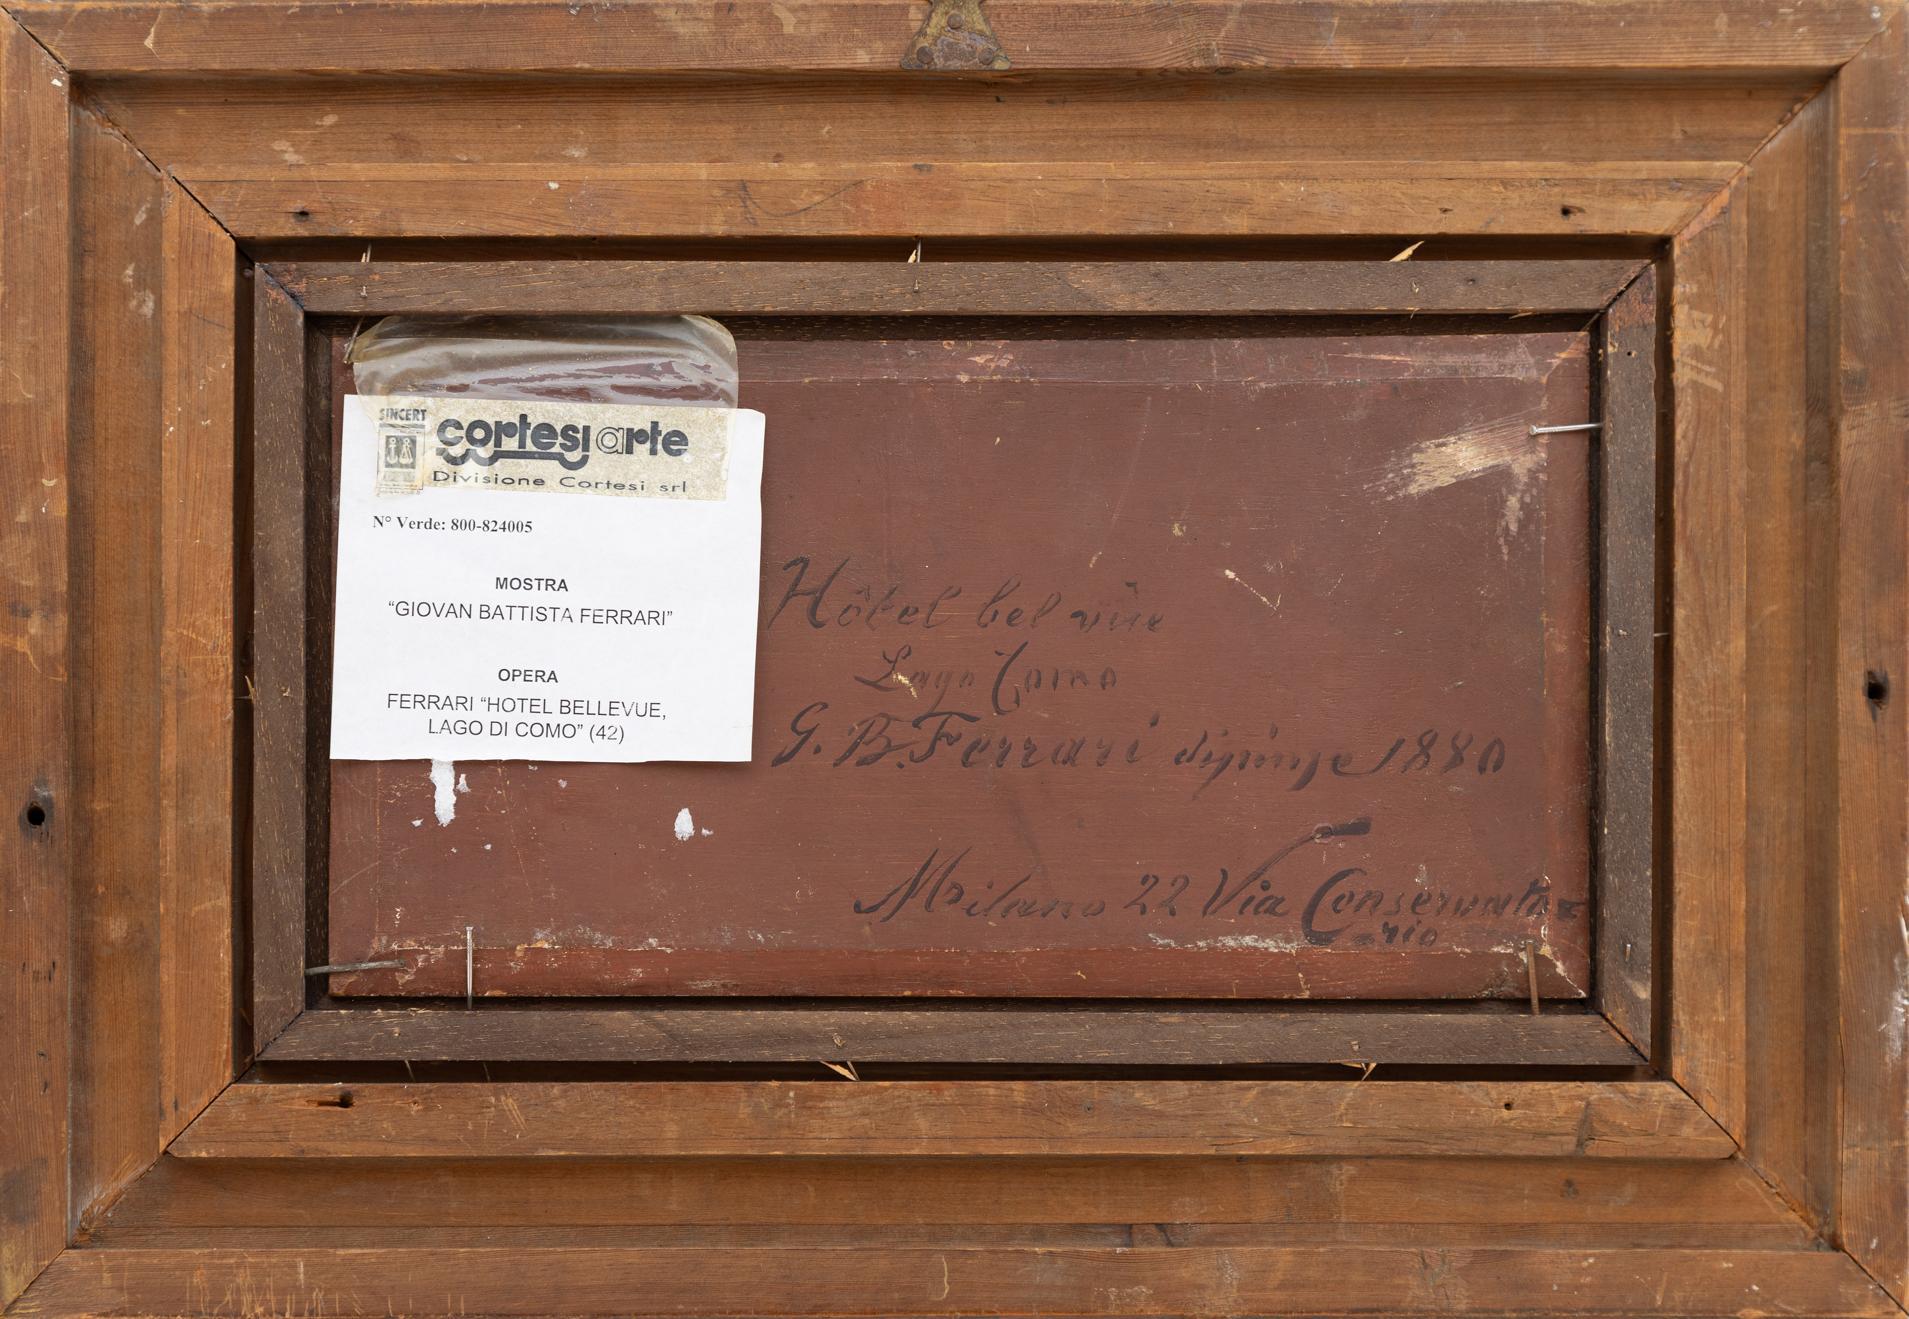 SINCERT
cortesiarte
Divisione Cortesi srl
N° Verde: 800-824005
MOSTRA
“GIOVAN BATTISTA FERRARI”
OPERA
FERRARI “HOTEL BELLEVUE,
LAGO DI COMO” (42)
Hôtel bel vüe
Lago Como
G. B. Ferrari dipinse 1880
Milano 22 Via Conservato
rio